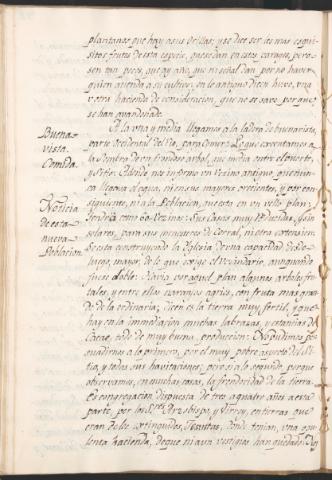 plantanas que hay a sus orillas; y se dice ser los mas exqui-
sitos frutos de esta especie, que se dan en estos parages, pero
son tan pocos, que ay año, que ni señal dan por no haver
quien atienda a su cultivo; en lo antiguo dicen huvo, una
u otra hacienda de consideracion, que no se save por que
se han
Buena-
vista.
Comida.
A la una y media llegamos a la ladera de buenavista,
parte occidental del rio, para comer: Lo que executamos a
la sombra de un frondoso arbol, que media entre el oeste,
y sitio. Adonde nos informo un Vecino antiguo, que nun-
ca llegava el agua, ni en sus mayores crecientes, y por con-
siguiente, ni a la Poblacion, que esta en un vello plan:
Noticia
de esta
nueva
Poblacion
tendra como 60. Vezinos: Sus Casas muy reducidas, y sin
solares, para sus de Corral, ni otra extension.
Se esta construyendo la Iglesia de una capacidad desde
luego, mayor, de la que exige el Vezindario, aunquando
fuese doble: Havia por aquel plan algunos arboles fru-
tales, y entre ellos naranjos agrios, con fruta mas gran-
de de la ordinaria; dicen es la tierra muy fertil, y que
hay en la inmediacion muchas labranzas, y estancias de
Cacao, todo de muy buena produccion: No pudimos per-
suadirnos a lo primero, por el muy pobre aspecto del Si-
tio, y todas sus havitaciones; pero si a lo segundo, porque
observamos, en muchas cosas, la frondosidad de la tierra.
Es congregacion dispuesta de tres a quatro años a esta
parte, por los S.res Arzobispo, y Virrey, en tierras que
eran de los extinguidos Jesuitas, donde tenian, una opu-
lenta hacienda, de que ni aun vestigios han quedado: